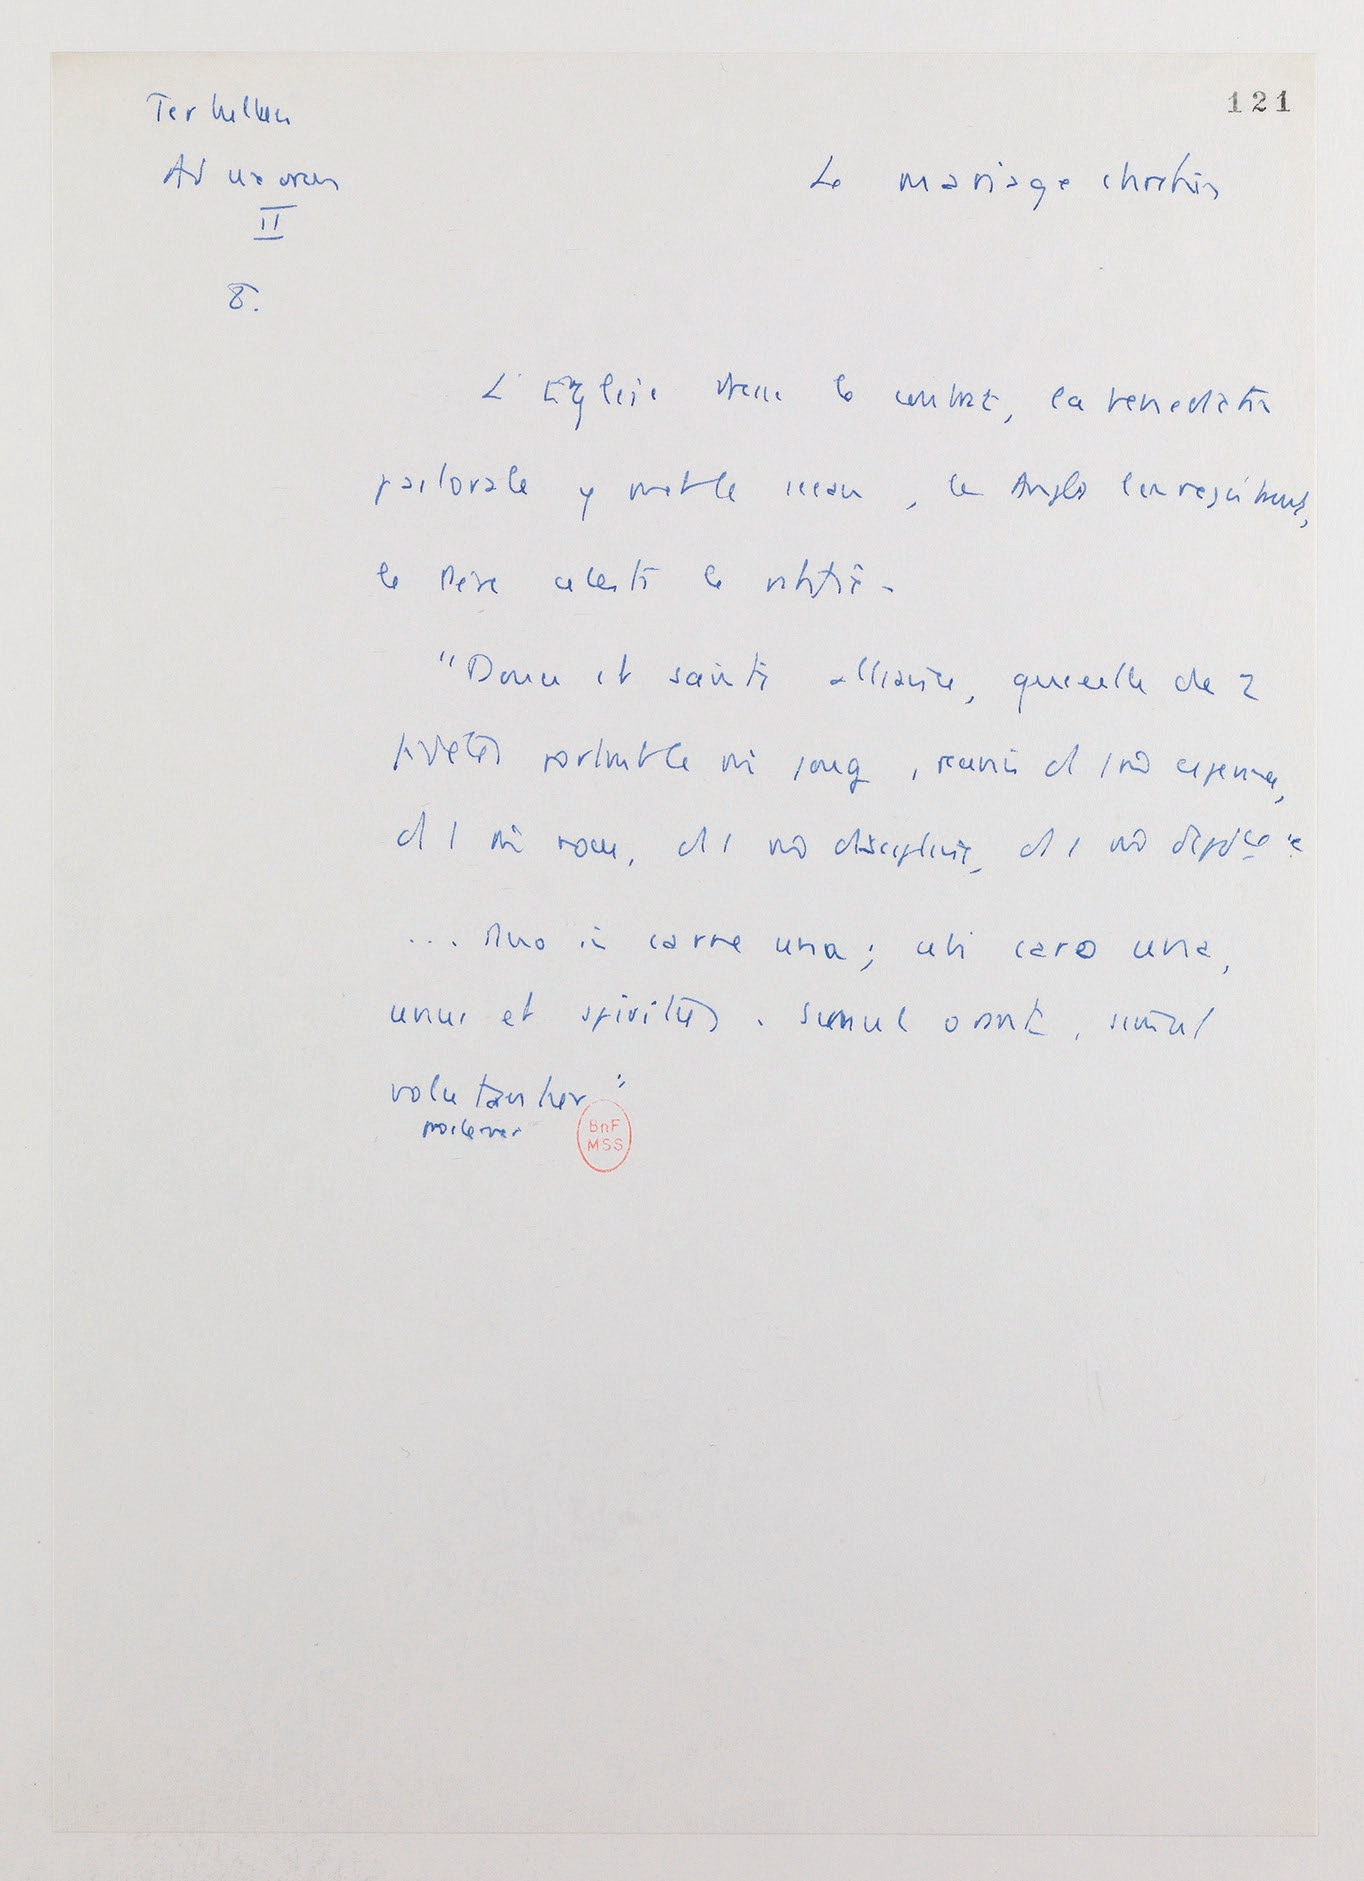 121
Tertullien
Ad uxorem
II
8.
Le mariage chrétien
L'Eglise dresse le contrat, la benedictio
pastorale y met le sceau, les Anges l'enregistrent,
le Père céleste le ratifie.
"Douce et sainte alliance, que celle de 2
fidèles portant le mm joug, réunis ds 1 mm espérance,
ds 1 mm voeu, ds 1 mm discipline, ds 1 mm
... duo in carne una; ubi caro una,
unus et spiritus. Simul orant, simul
volutantur"
BnF
MSS